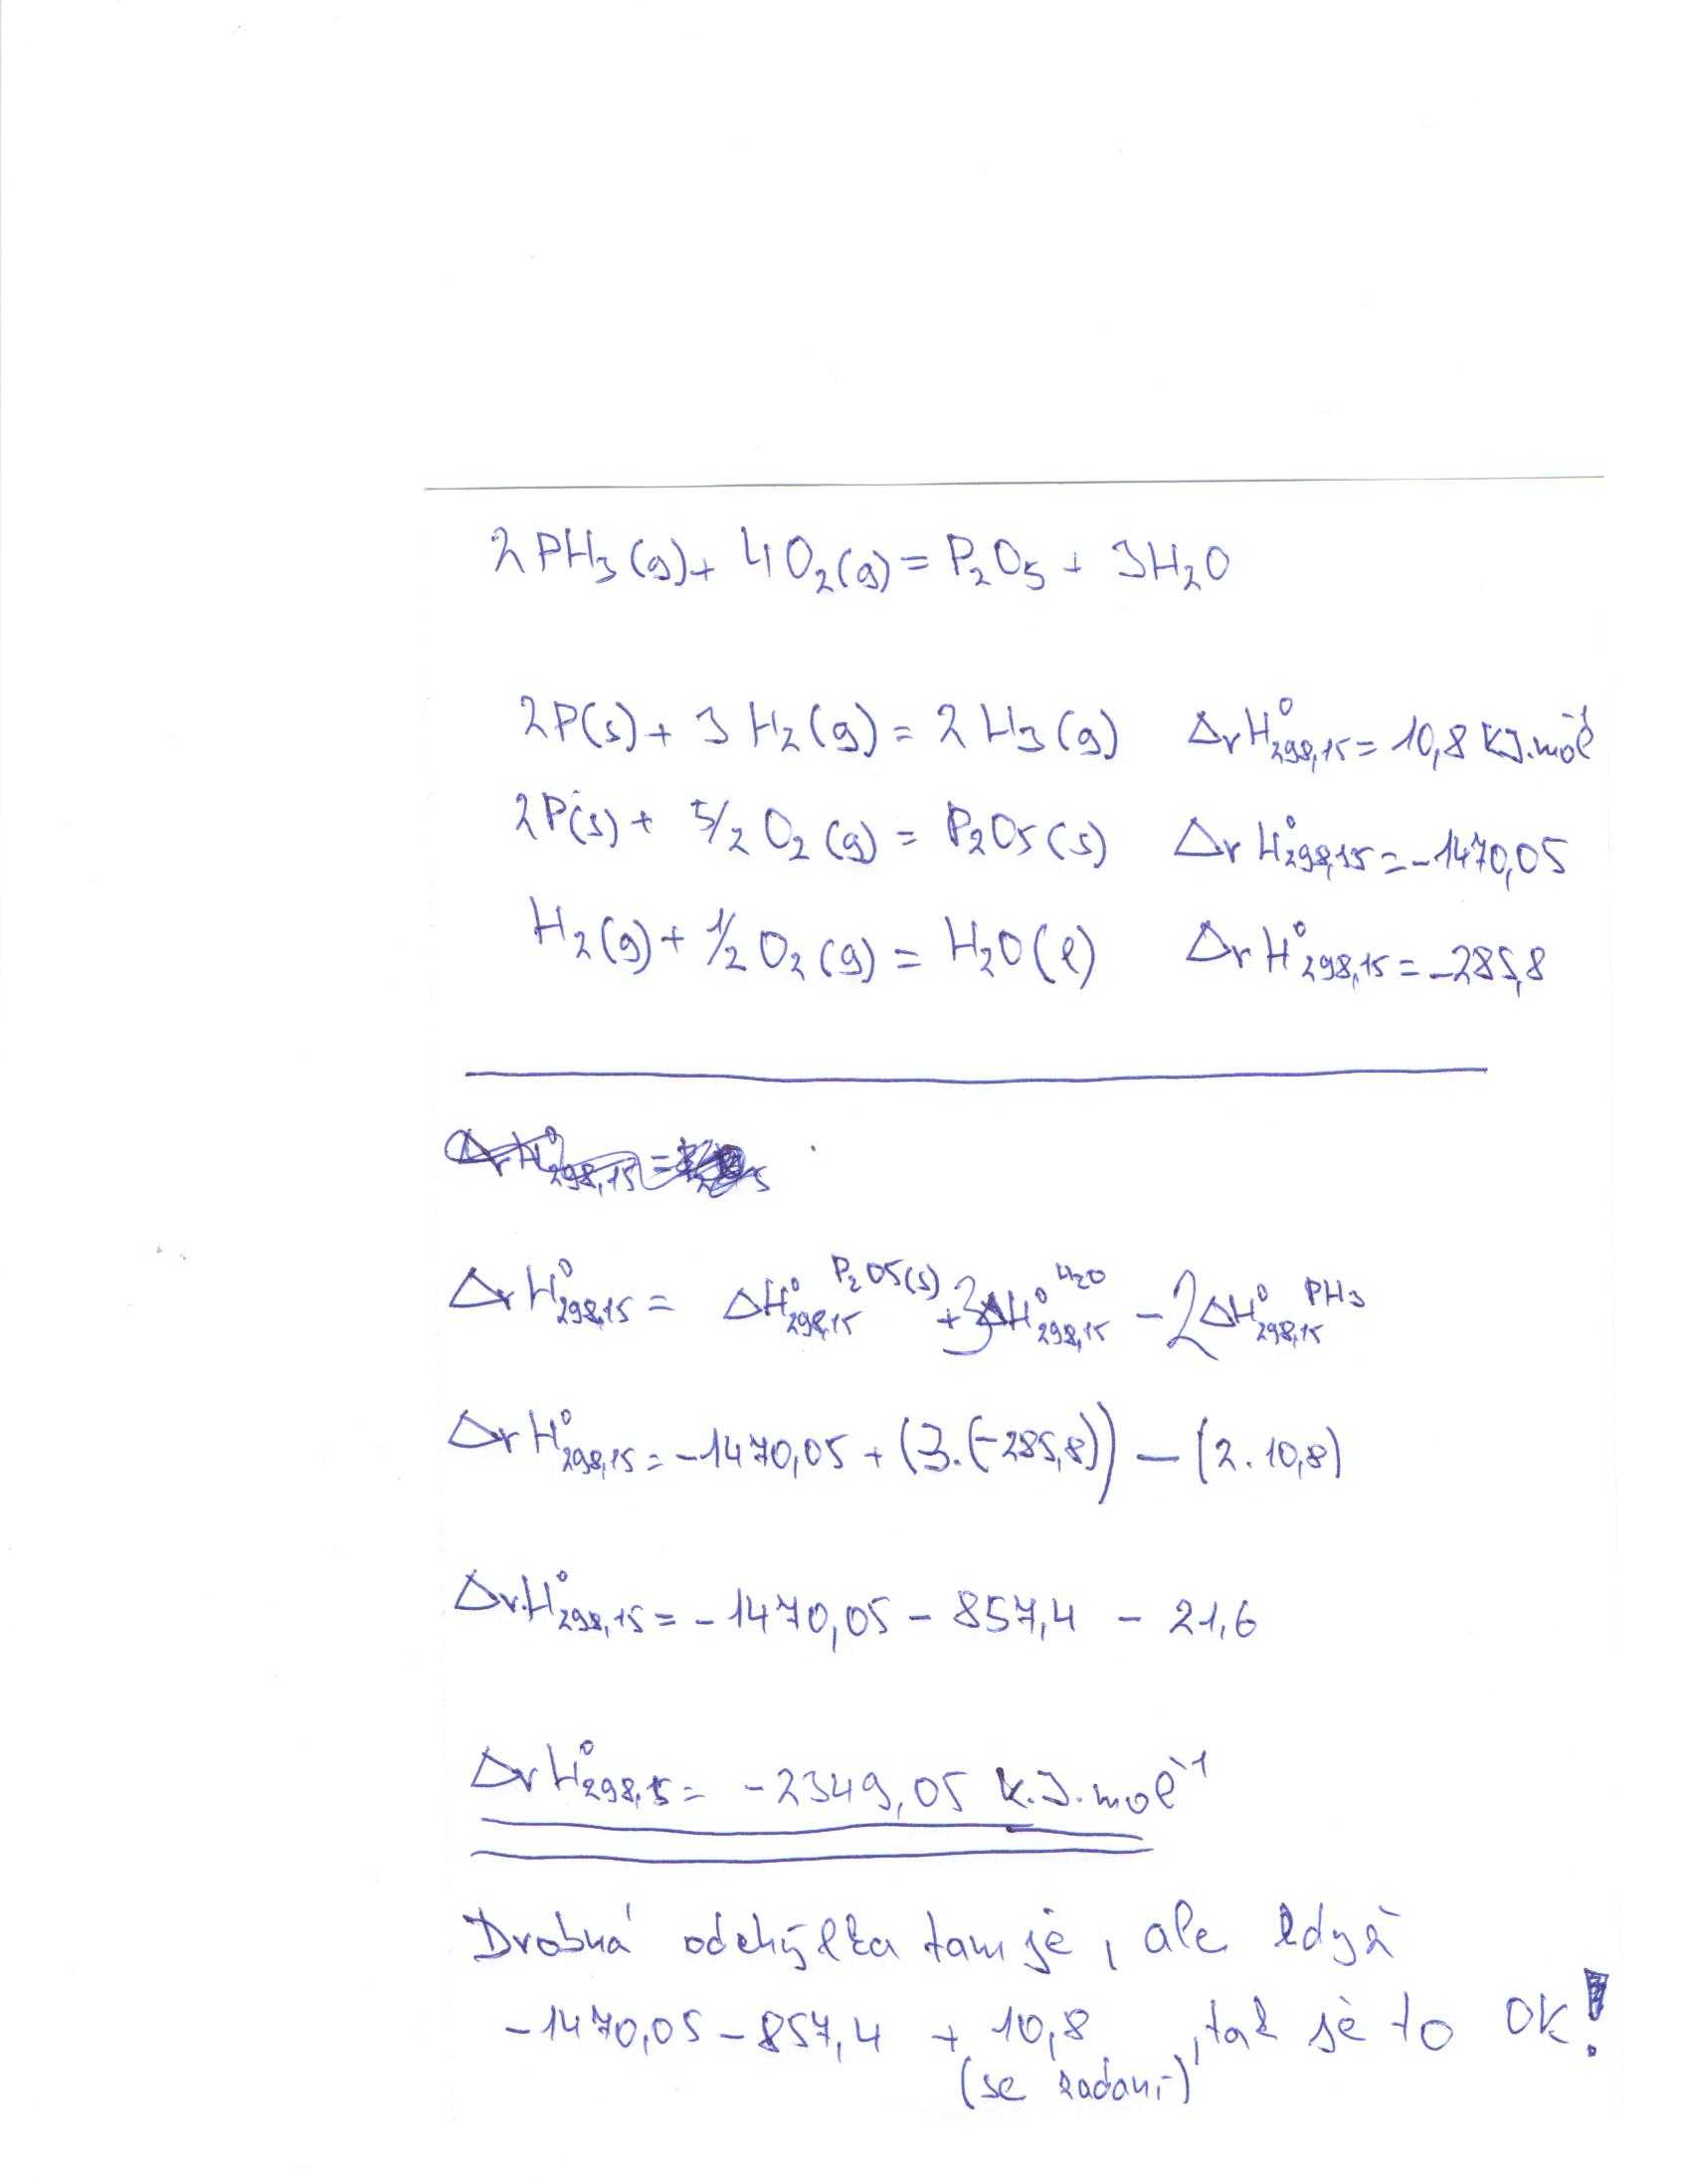 2PH₃(g) + 4O₂(g) = P₂O₅ + 3H₂O
2P(s) + 3H₂(g) = 2H₃(g) ΔrH°298,15 = 10,8 kJ.mol⁻¹
2P(s) + 5/2 O₂(g) = P₂O5(s) ΔrH°298,15 = -1470,05
H₂(g) + 1/2 O₂(g) = H₂O(l) ΔrH°298,15 = -285,8
ΔrH°298,15 =
ΔrH°298,15 = ΔH°298,15 P₂O5(s) + 3ΔH°298,15 H₂O - 2ΔH°298,15 PH₃
ΔrH°298,15 = -1470,05 + (3.(-285,8)) - (2.10,8)
ΔrH°298,15 = -1470,05 - 857,4 - 21,6
ΔrH°298,15 = -2349,05 k.J.mol⁻¹
Drobná odchýlka tam je, ale když
-1470,05 - 857,4 + 10,8, tak je to OK!
(se zadání)